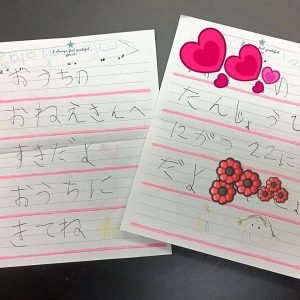 I always feel grateful
おうちの
おねえさんへ
すきだよ
おうちに
きてね
の
たんじょうび
12がつ 22に
だよ